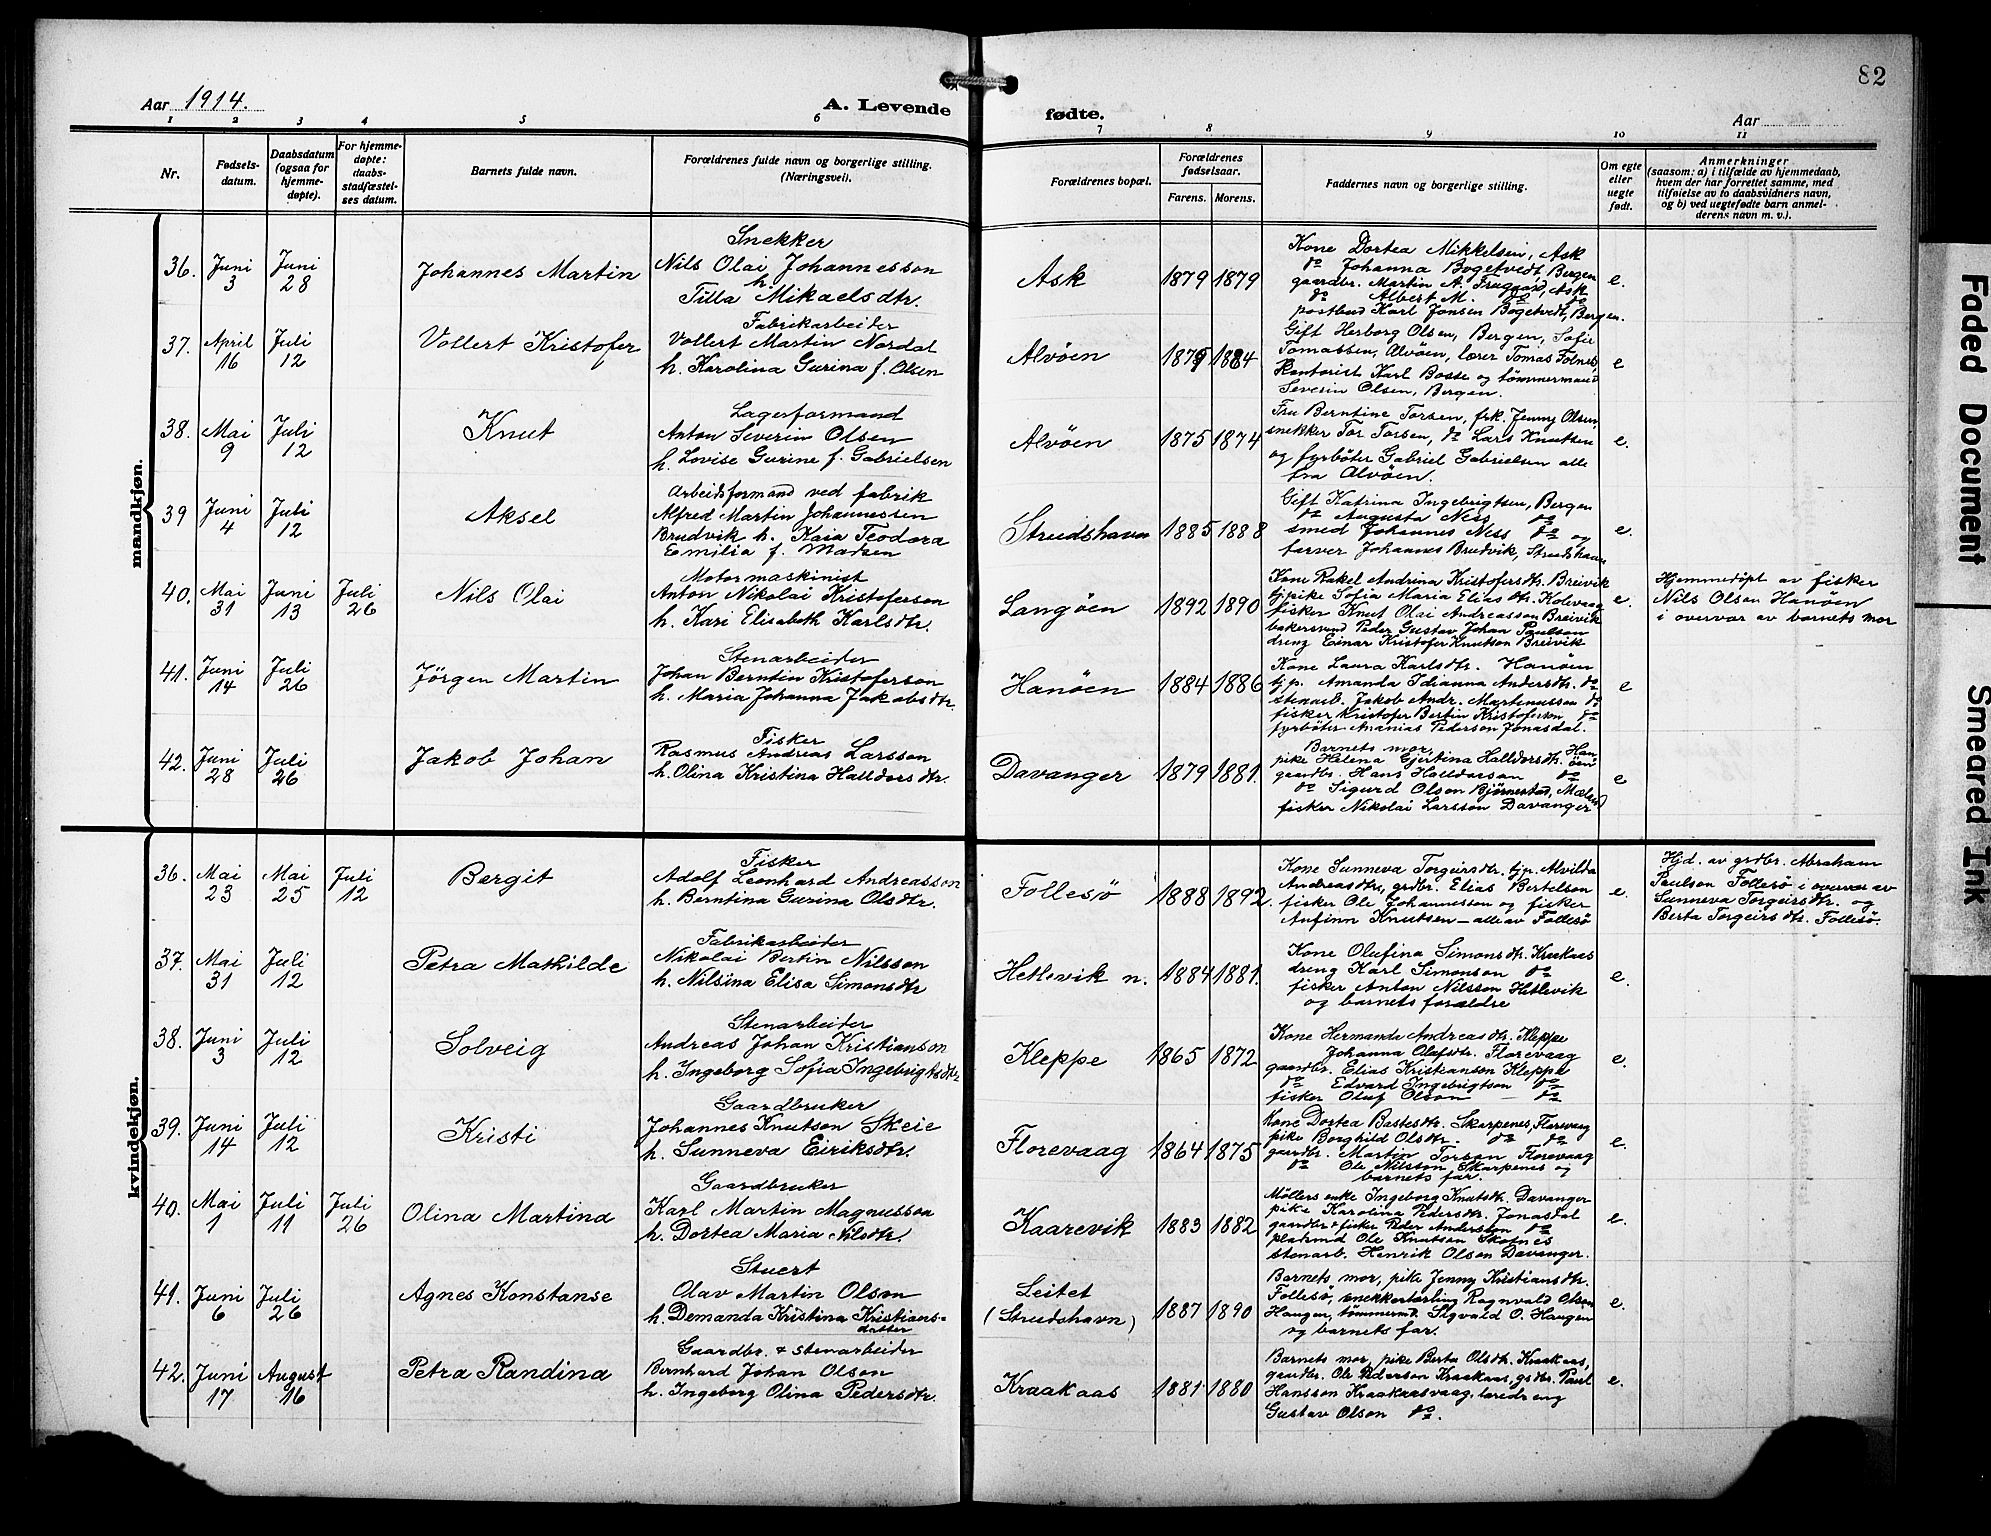 82
Aar 1914.
A. Levende
fødte.
Aar
1 2 3 4 5 6 7 8 9 10 11
Nr.
Fødsels-
datum.
Daabsdatum
(ogsaa for
hjemme-
døpte).
For hjemme-
døpte:
daabs-
stadfæstel-
ses datum.
Barnets fulde navn.
Forældrenes fulde navn og borgerlige stilling.
(Næringsvei).
Forældrenes bopæl.
Forældrenes
fødselsaar.
Farens. Morens.
Faddernes navn og borgerlige stilling.
Om egte
eller
uegte
født.
Anmerkninger
(saasom: a) i tilfælde av hjemmedaab,
hvem der har forrettet samme, med
tilføielse av to daabsvidners navn,
og b) ved uegtefødte barn anmel-
derens navn m. v.).
mandkjøn.
36. Juni 3 Juni 28
Johannes Martin
Snekker
Nils Olai Johannesson
h.
Tilla Mikaelsdtr.
Ask
1879 1879
Kone Dortea Mikkelsen, Ask
do Johanna Bogetvedt, Bergen
gaardbr. Martin A. Trugaard, Ask
do Albert M. do do
postbud Karl Jonsen Bogetvedt, Bergen.
e.
37. April 16 Juli 12
Vollert Kristofer
Fabrikarbeider
Vollert Martin Nordal
h. Karolina Gurina f. Olsen
Alvøen
1875 1884
Gift Herborg Olsen, Bergen, Sofie
Tomassen, Alvøen, lærer Tomas Folnes,
Kontorist Karl Bosse og tømmermand
Severin Olsen, Bergen.
e
38. Mai 9 Juli 12
Knut
Lagerformand
Anton Severin Olsen
h. Lovise Gurine f. Gabrielsen
Alvøen
1875 1874
Fru Berntine Torsen, frk. Jenny Olsen,
snekker Tor Torsen, do Lars Knutsen
og fyrbøter Gabriel Gabrielsen alle
fra Alvøen.
e.
39 Juni 4 Juli 12
Aksel
Arbeidsformand ved fabrik
Alfred Martin Johannessen
Brudvik h. Kaia Teodora
Emilia f. Matsen
Strudshavn
1885 1888
Gift Katrina Ingebrigtsen, Bergen
do Augusta Ness do
smed Johannes Ness do og
farver Johannes Brudvik, Strudshavn
e.
40. Mai 31 Juni 13 Juli 26
Nils Olai
Motormaskinist
Anton Nikolai Kristoferson
h. Kari Elisabeth Karlsdtr.
Langøen
1892 1890
Kone Rakel Andrina Kristofersdtr. Breivik
tjpike Sofia Maria Elias dtr. Kolevaag
fisker Knut Olai Andreasson Breivik
bakersvend Peder Gustav Johan Paulson
dreng Einar Kristofer Knutson Breivik
e.
Hjemmedøpt av fisker
Nils Olson Hanøen
i overvær av barnets mor
41. Juni 14 Juli 26
Jørgen Martin
Stenarbeider
Johan Berntin Kristoferson
h. Maria Johanna Jakobsdtr.
Hanøen
1884 1886
Kone Laura Karlsdtr. Hanøen
tjp. Amanda Idianna Andersdtr. do
stenarb. Jakob Andr. Martinusson do
fisker Kristofer Bertin Kristoferson do
fyrbøter Ananias Pederson Jonasdal.
e
42. Juni 28 Juli 26
Jakob Johan
Fisker
Rasmus Andreas Larsson
h. Olina Kristina Halldorsdtr.
Davanger
1879 1881.
Barnets mor,
pike Helena Gjertina Halldorsdtr. Hanøen
gaardbr. Hans Halldorson do
do Sigurd Olson Bjørnestad, Mæland
fisker Nikolai Larsson Davanger
e
kvindekjøn.
36. Mai 23 Mai 25 Juli 12
Bergit
Fisker
Adolf Leonhard Andreasson
h. Berntina Gurina Olsdtr.
Follesø
1888 1892.
Kone Sunneva Torgeirsdtr. tjp. Alvilda
Andreasdtr, grdbr. Elias Bertelson
fisker Ole Johannesson og fisker
Anfinn Knutsen - alle av Follesø
e.
Hjd. av grdbr. Abraham
Paulson Follesø i overvær av
Sunneva Torgeirsdtr. og
Berta Torgeirsdtr. Follesø.
37. Mai 31 Juli 12
Petra Mathilde
Fabrikarbeider
Nikolai Bertin Nilsson
h. Nilsina Elisa Simonsdtr
Hetlevik n.
1884 1881.
Kone Olufina Simonsdtr. Kraakaas
dreng Karl Simonson do
fisker Anton Nilsson Hetlevik
og barnets forældre
e.
38. Juni 3 Juli 12
Solveig
Stenarbeider
Andreas Johan Kristianson
h. Ingeborg Sofia Ingebrigtsdtr.
Kleppe
1865 1872
Kone Hermanda Andreasdtr. Kleppe
Johanna Olafsdtr. Florevaag
gaardbr. Elias Kristianson Kleppe
do Edvard Ingebrigtson do
fisker Oluf Olson - do
e.
39. Juni 14 Juli 12
Kristi
Gaardbruker
Johannes Knutson Skeie
h. Sunneva Eiriksdtr.
Florevaag
1864 1875
Kone Dortea Bastesdtr. Skarpenes, Florevaag
pike Borghild Olsdtr. do do
gaardbr. Martin Torson Florevaag
do Ole Nilsson Skarpenes og
barnets far.
e.
40. Mai 1 Juli 11 Juli 26
Olina Martina
Gaardbruker
Karl Martin Magnusson
h. Dortea Maria Nilsdtr.
Kaarevik
1883 1882
Møllers enke Ingeborg Knutsdtr. Davanger
pike Karolina Pedersdtr. Jonasdal
gaardbr & fisker Peder Andersson do
pladsmd Ole Knutson Skotnes
stenarb. Henrik Olson Davanger.
e.
41. Juni 6 Juli 26
Agnes Konstanse
Stuert
Olav Martin Olson
h. Demanda Kristina Kristians-
datter
Leitet
(Strudshavn)
1887 1890
Barnets mor, pike Jenny Kristiansdtr.
Follesø, snekkerlærling Ragnvald Olson
Haugen, tømmermd. Sigvald O. Haugen
og barnets far.
e.
42. Juni 17 August 16
Petra Randina
Gaardbr. & stenarbeider
Bernhard Johan Olson
h. Ingeborg Olina Pedersdtr.
Kraakaas
1881 1880
Barnets mor, pike Berta Olsdtr. Kraakaas,
gaardbr. Ole Pederson Kraakaas, gsbr. Paul
Hansson Kraakaasvaag, læredreng
Gustav Olson do.
e.
Faded Document
Smeared Ink